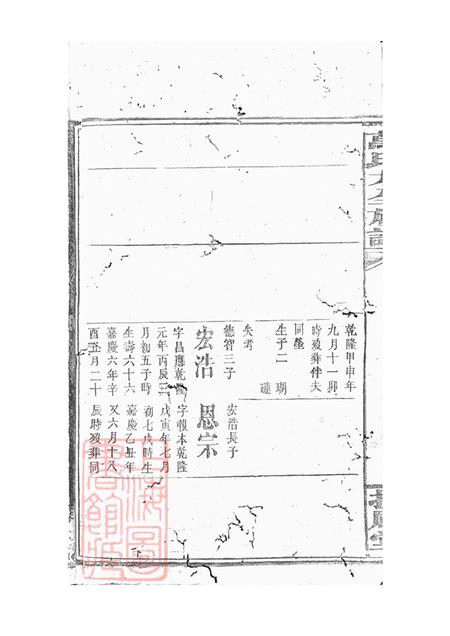 乾隆甲申年
九月十一卯
時歿葬伴夫
同塋
生子二 瑚
璉
失考
德智三子
宏浩
字昌應乾隆
元年丙辰三
月初五子時
生壽六十六
嘉慶六年辛
酉五月二十
宏浩長子
恩宗
字報本乾隆
戊寅年七月
初七戌時生
嘉慶乙丑年
又六月十八
辰時歿葬同
上海圖
書館藏